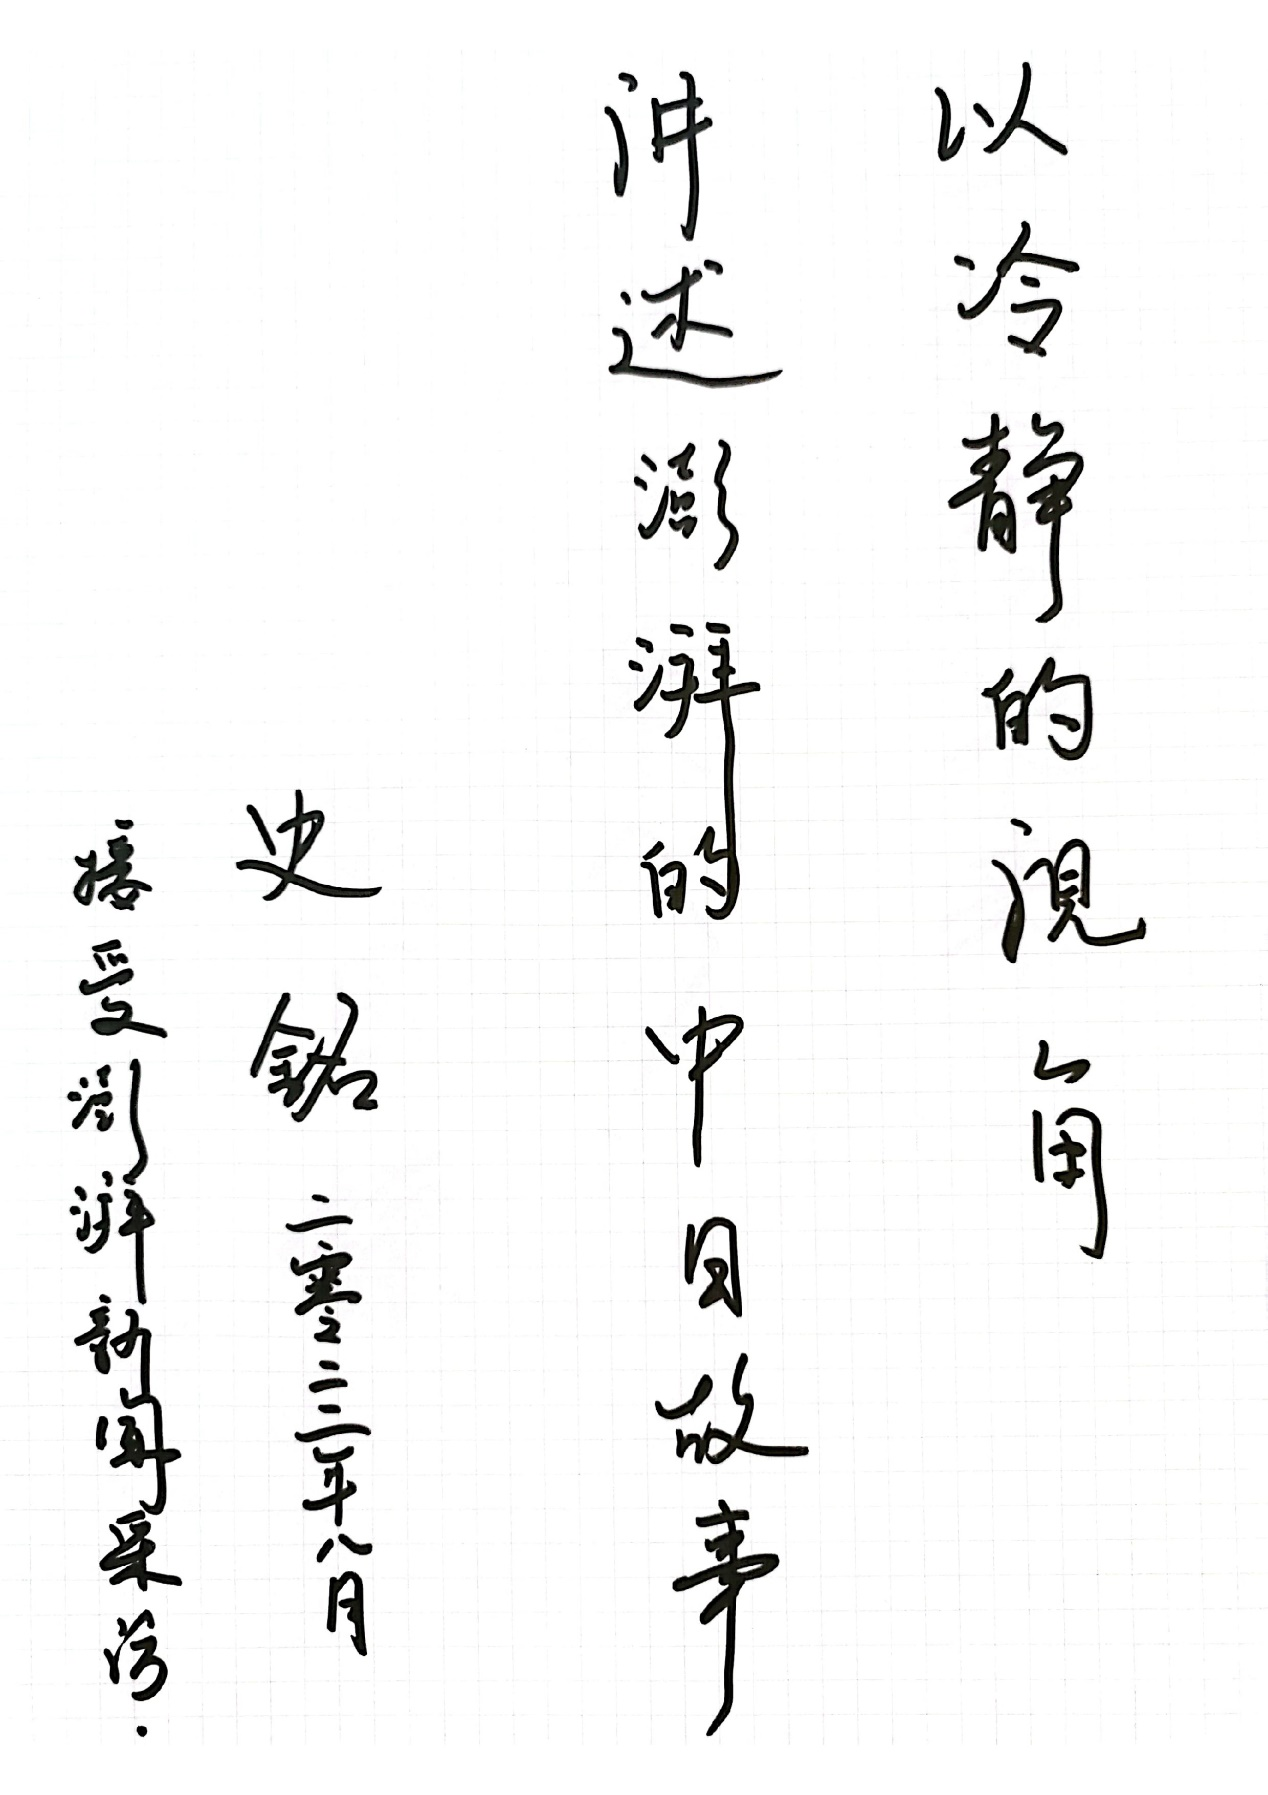 以冷静的视角
讲述澎湃的中日故事
史铭 二零二三年八月
接受澎湃新闻采访.